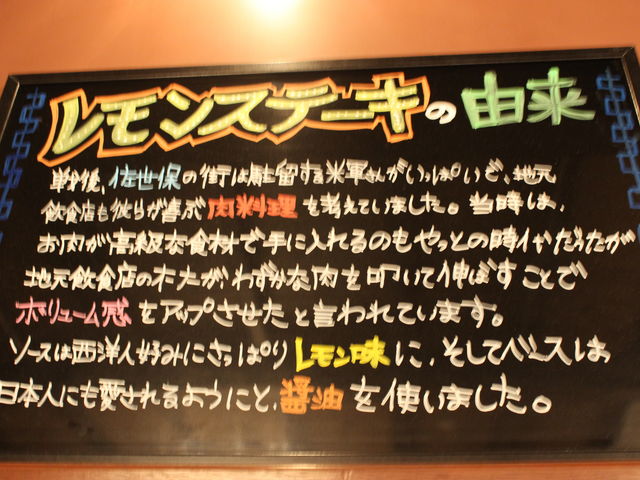 レモンステーキの由来
戦後、佐世保の街は駐留する米軍さんがいっぱいで、地元
飲食店も彼らが喜ぶ肉料理を考えていました。当時は、
お肉が高級な食材で手に入れるのもやっとの時代だったが
地元飲食店のオーナーが、わずかな肉を叩いて伸ばすことで
ボリューム感をアップさせたと言われています。
ソースは西洋人好みにさっぱりレモン味に、そしてベースは
日本人にも愛されるようにと、醤油を使いました。